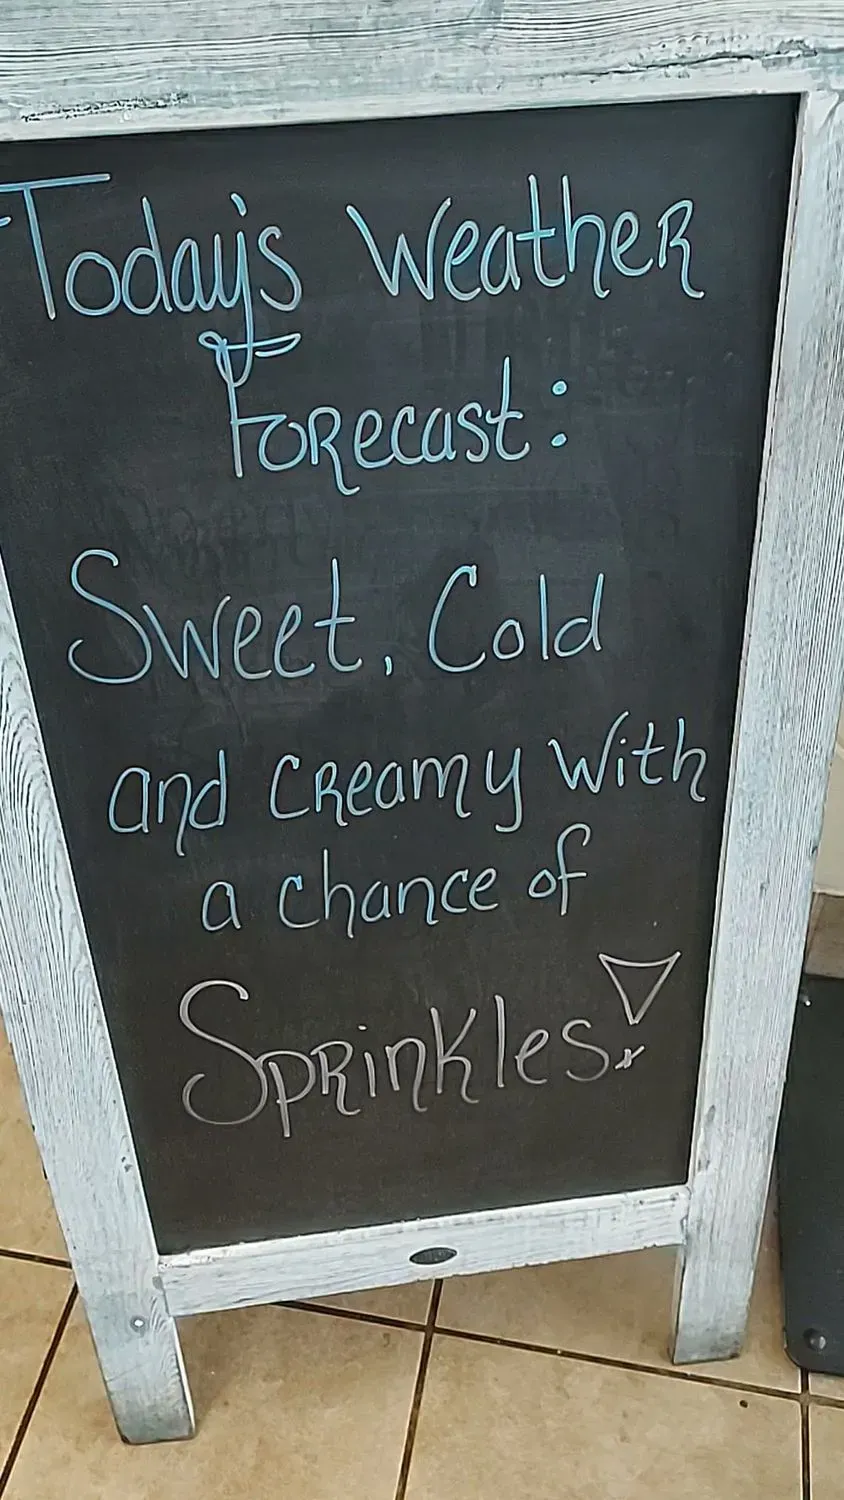 Today's Weather
Forecast:
Sweet, Cold
and Creamy With
a Chance of
Sprinkles!